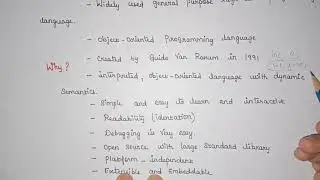 - Widely used general purpose
language.
- object-oriented Programming language
Why? - created by Guido Van Rossum in 1991
- interpreted, object-oriented language with dynamic
Semantics.
- Simple and easy to learn and interactive
- Readability (identation)
- Debugging is very easy.
- Open Source with large Standard library
- Platform - independent
- Extensible and Embeddable